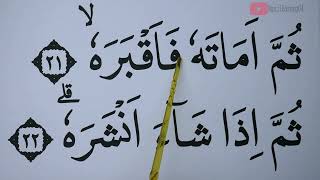 ثُمَّ اَمَاتَهٗ فَاَقْبَرَهٗ ۙ ﴿٢١﴾
ثُمَّ اِذَا شَاۤءَ اَنْشَرَهٗ ۗ ﴿٢٢﴾